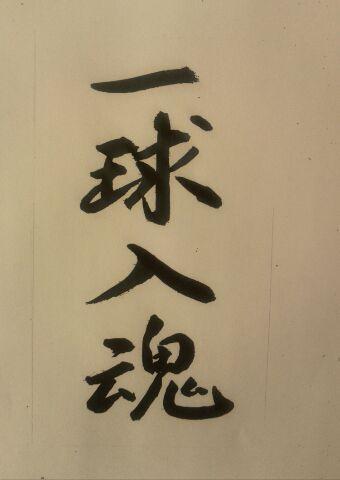 一球入魂